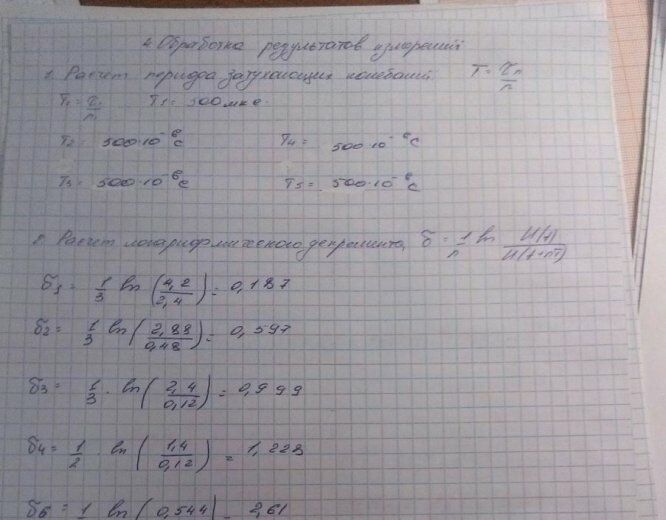 4. Обработка результатов измерений
1. Расчет периода затухающих колебаний T = τn/n
T1 = τ1/n1 T1 = 500 мкс.
T2 = 500·10⁻⁶ с T4 = 500·10⁻⁶ с
T3 = 500·10⁻⁶ с T5 = 500·10⁻⁶ с
2. Расчет логарифмического декремента, δ = 1/n ln U(t)/U(t+nT)
δ1 = 1/3 ln (4,2/2,4) = 0,187
δ2 = 1/3 ln (2,88/0,48) = 0,597
δ3 = 1/3 · ln (2,4/0,12) = 0,999
δ4 = 1/2 · ln (1,4/0,12) = 1,228
δ5 = 1 ln (0,544 = 2,61